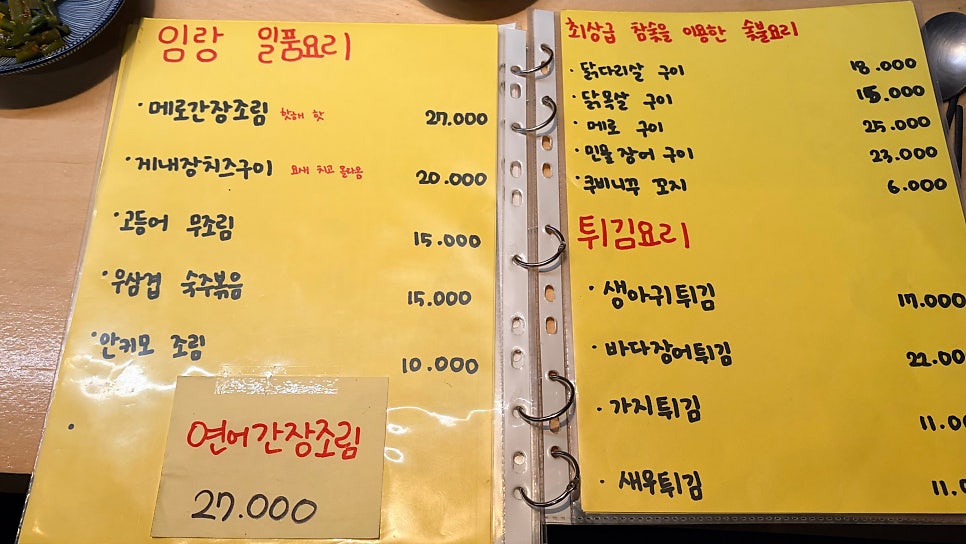 임랑 일품요리
·메로간장조림 핫해 핫 27.000
·게내장치즈구이 요새 치고 올라옴 20.000
·고등어 무조림 15.000
·우삼겹 숙주볶음 15.000
·안키모 조림 10.000
연어간장조림
27.000
최상급 참숯을 이용한 숯불요리
·닭다리살 구이 18.000
·닭목살 구이 15.000
·메로 구이 25.000
·민물장어 구이 23.000
·쿠비니꾸 꼬지 6.000
튀김요리
·생아귀튀김 17.000
·바다장어튀김 22.00
·가지튀김 11.0
·새우튀김 11.